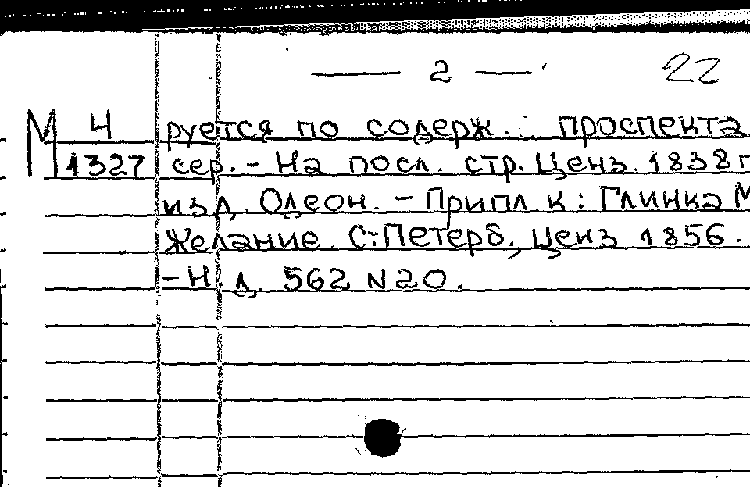 — 2 — 22
М 4 руется по содерж. проспекта
1327 сер. - На посл. стр. Ценз. 1838 г
изд. Одеон. - Припл. к: Глинка М
Желание. С.-Петерб., ценз 1856.
- Н. д. 562 N20.